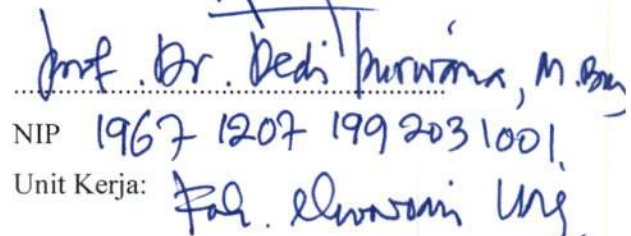 Prof. Dr. Dedi Purwana, M.Bus
NIP 1967 1207 199203 1001
Unit Kerja: Fak. Ekonomi UNJ